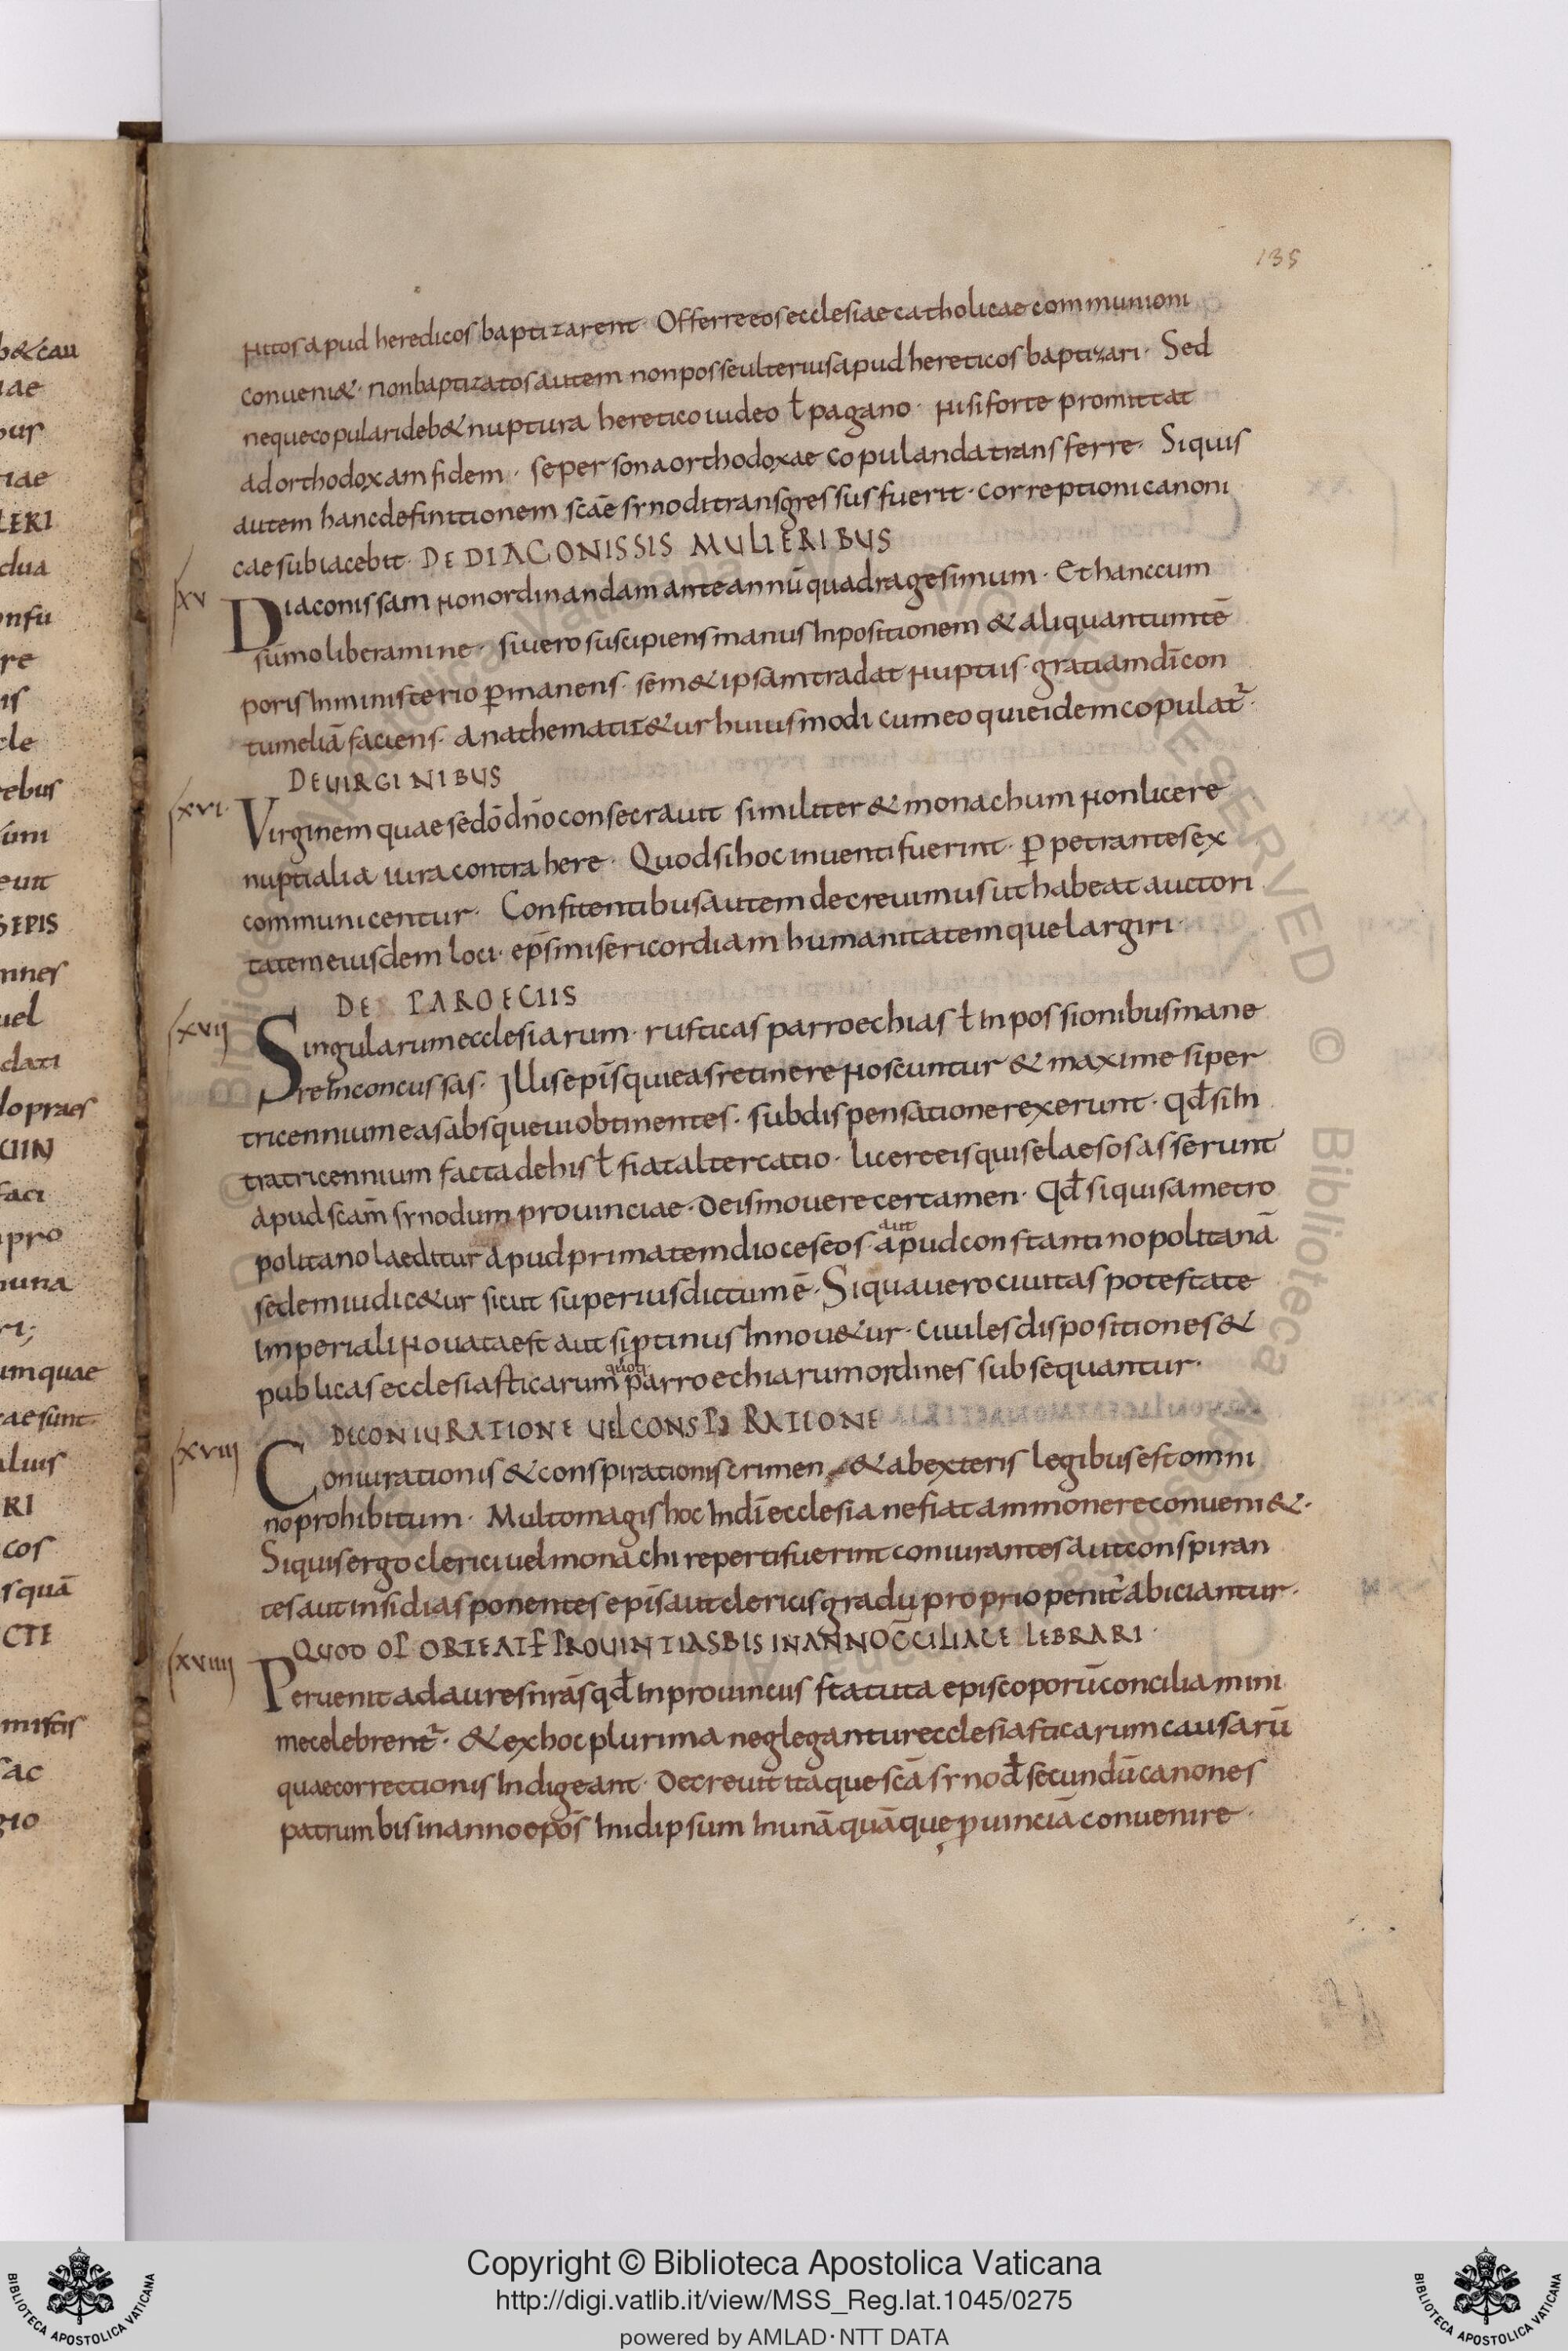 135
nitos apud heredicos baptizarent · Offerre eos ecclesiae catholicae communioni
conueni& · non baptizatos autem non posse ulterius apud hereticos baptizari · Sed
neque copulari deb& nuptura heretico iudeo ƚ pagano · Nisi forte promittat
ad orthodoxam fidem · se persona orthodoxae copulanda transferre · Si quis
autem hanc definitionem scāe synodi transgressus fuerit · correptioni canoni
cae subiacebit · DE DIACONISSIS MULIERIBUS
xv Diaconissam non ordinandam ante annū quadragesimum · Et hanc cum
sumo liberamine · si uero suscipiens manus inpositionem & aliquantum tē
poris in ministerio ꝑmanens · sem& ipsam tradat nuptiis · gratiam dī con
tumeliā faciens · anathematiz&ur huiusmodi cum eo qui eidem copulat̄ ·
DE UIRGINIBUS
xvi · Virginem quae se dō dn̄o consecrauit similiter & monachum non licere
nuptialia iura contrahere · Quod si hoc inuenti fuerint · ꝑpetrantes ex
communicentur · Confitentibus autem decreuimus ut habeat auctori
tatem eiusdem loci · ep̄s misericordiam humanitatemque largiri ·
DE PAROECIIS
xvii Singularum ecclesiarum · rusticas parroechias ƚ in possionibus mane
re inconcussas · Illis ep̄is qui eas retinere noscuntur & maxime si per
tricennium eas absque ui obtinentes · sub dispensatione rexerunt · qđ si in
tra tricennium facta de his ƚ fiat altercatio · licere eis qui se laesos asserunt
apud scam̄ synodum prouinciae · de is mouere certamen · Qđ si quis a metro
politano laeditur apud primatem dioceseos · aut apud constantinopolitanā
sedem iudic&ur sicut superius dictum ē · Si qua uero ciuitas potestate
imperiali nouata est aut si ptinus innou&ur · ciuiles dispositiones &
publicas ecclesiasticarum quoq parroechiarum ordines subsequantur ·
DE CONIURATIONE UEL CONSPIRATIONE
xviii Coniurationis & conspirationis crimen & ab exteris legibus est omni
no prohibitum · Multo magis hoc in dī ecclesia ne fiat ammonere conueni& ·
Si quis ergo clerici uel monachi reperti fuerint coniurantes aut conspiran
tes aut insidias ponentes ep̄is aut clericis gradu proprio penit̄ abiciantur ·
QUOD OPORTEAT PROUINTIAS BIS IN ANNO CŌCILIA CELEBRARI ·
xviiii Peruenit ad aures nrās qđ in prouinciis statuta episcoporū concilia mini
me celebrent̄ · & ex hoc plurima neglegantur ecclesiasticarum causarū
quae correctionis indigeant · decreuit itaque scā synođ secundū canones
patrum bis in anno epōs in id ipsum in unā quāque ꝓuinciā conuenire ·
Copyright © Biblioteca Apostolica Vaticana
http://digi.vatlib.it/view/MSS_Reg.lat.1045/0275
powered by AMLAD·NTT DATA
BIBLIOTECA APOSTOLICA VATICANA
BIBLIOTECA APOSTOLICA VATICANA